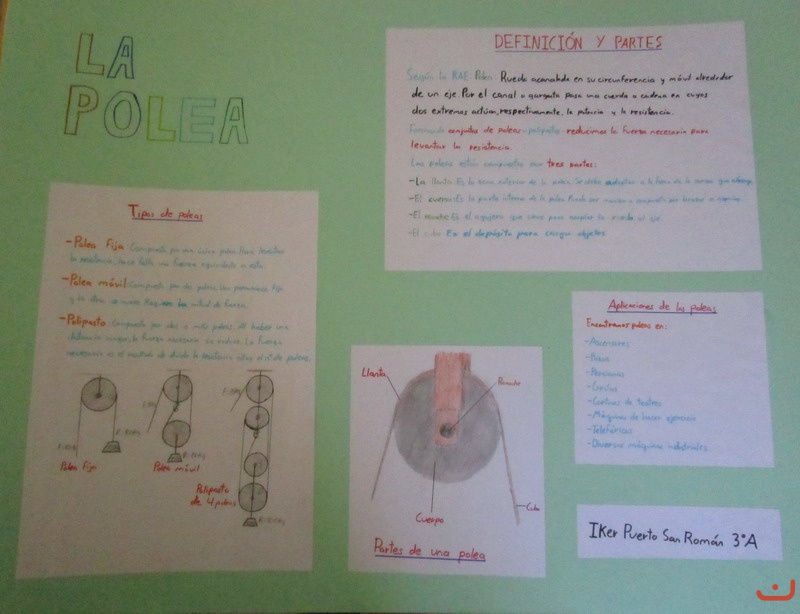 LA
POLEA
DEFINICIÓN Y PARTES
Según la RAE: Polea: Rueda acanalada en su circunferencia y móvil alrededor
de un eje. Por el canal o garganta pasa una cuerda o cadena en cuyos
dos extremos actúan, respectivamente, la potencia y la resistencia.
conjuntos de poleas - polipastos - reducimos la fuerza necesaria para
levantar la resistencia.
Las poleas están compuestas por tres partes:
-La llanta: Es la zona exterior de la polea. Se debe a la forma de la
-El cuerpo: Es la parte interna de la polea. Puede ser
-El Es el agujero que sirve para la rueda al eje.
-El cubo: En el depósito para cargar objetos
Tipos de poleas
-Polea fija Compuesta por una única polea. Para levantar
la resistencia, hace falta una fuerza equivalente a esta.
-Polea móvil Compuesta por dos poleas. Una permanece fija
y la otra se mueve. mitad de fuerza.
-Polipasto Compuesto por dos o más poleas. Al haber una
distancia mayor, la fuerza necesaria se reduce. La fuerza
necesaria es el resultado de dividir la resistencia entre el nº de poleas.
Polea fija
Polea móvil
Polipasto
de 4 poleas
Llanta
Cuerpo
Cubo
Partes de una polea
Aplicaciones de las poleas
Encontramos poleas en:
-Ascensores
-Pozos
-Persianas
-Grúas
-Cortinas de teatros
-Máquinas de hacer ejercicio
-Teleféricos
-Diversas máquinas industriales
IKer Puerto San Román 3ºA